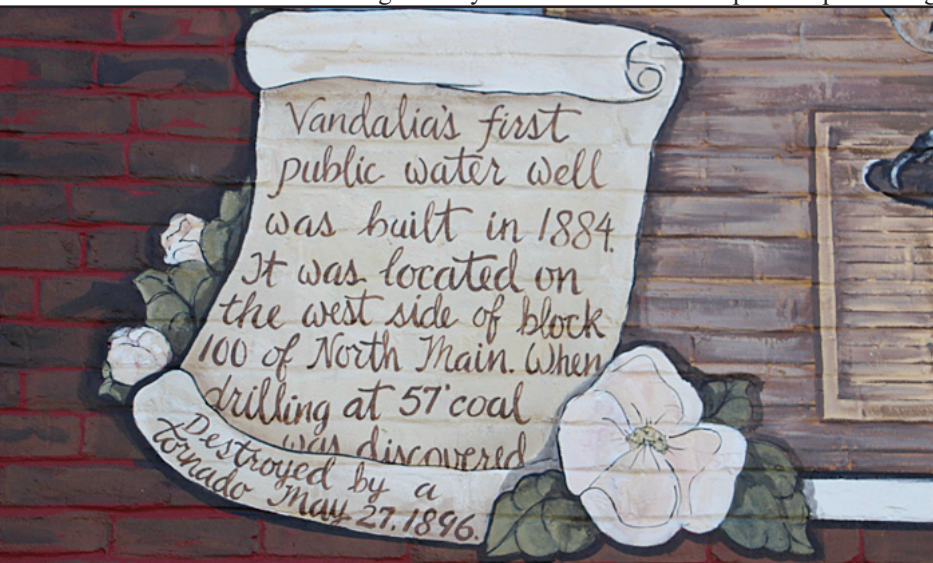 Vandalia's first
public water well
was built in 1884.
It was located on
the west side of block
100 of North Main. When
drilling at 57' coal
was discovered
Destroyed by a
tornado May 27, 1896.